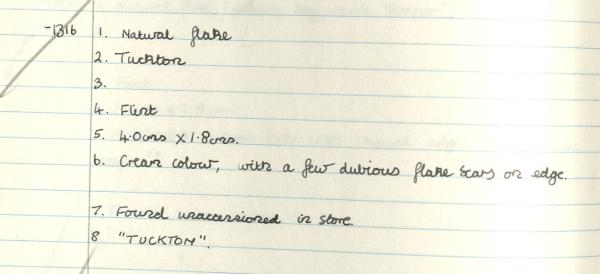 -1316 1. Natural flake
2. Tuckton
3.
4. Flint
5. 4.0cms X 1.8cms.
6. Cream colour, with a few dubious flake scars on edge.
7. Found unaccessioned in store.
8 "TUCKTON".